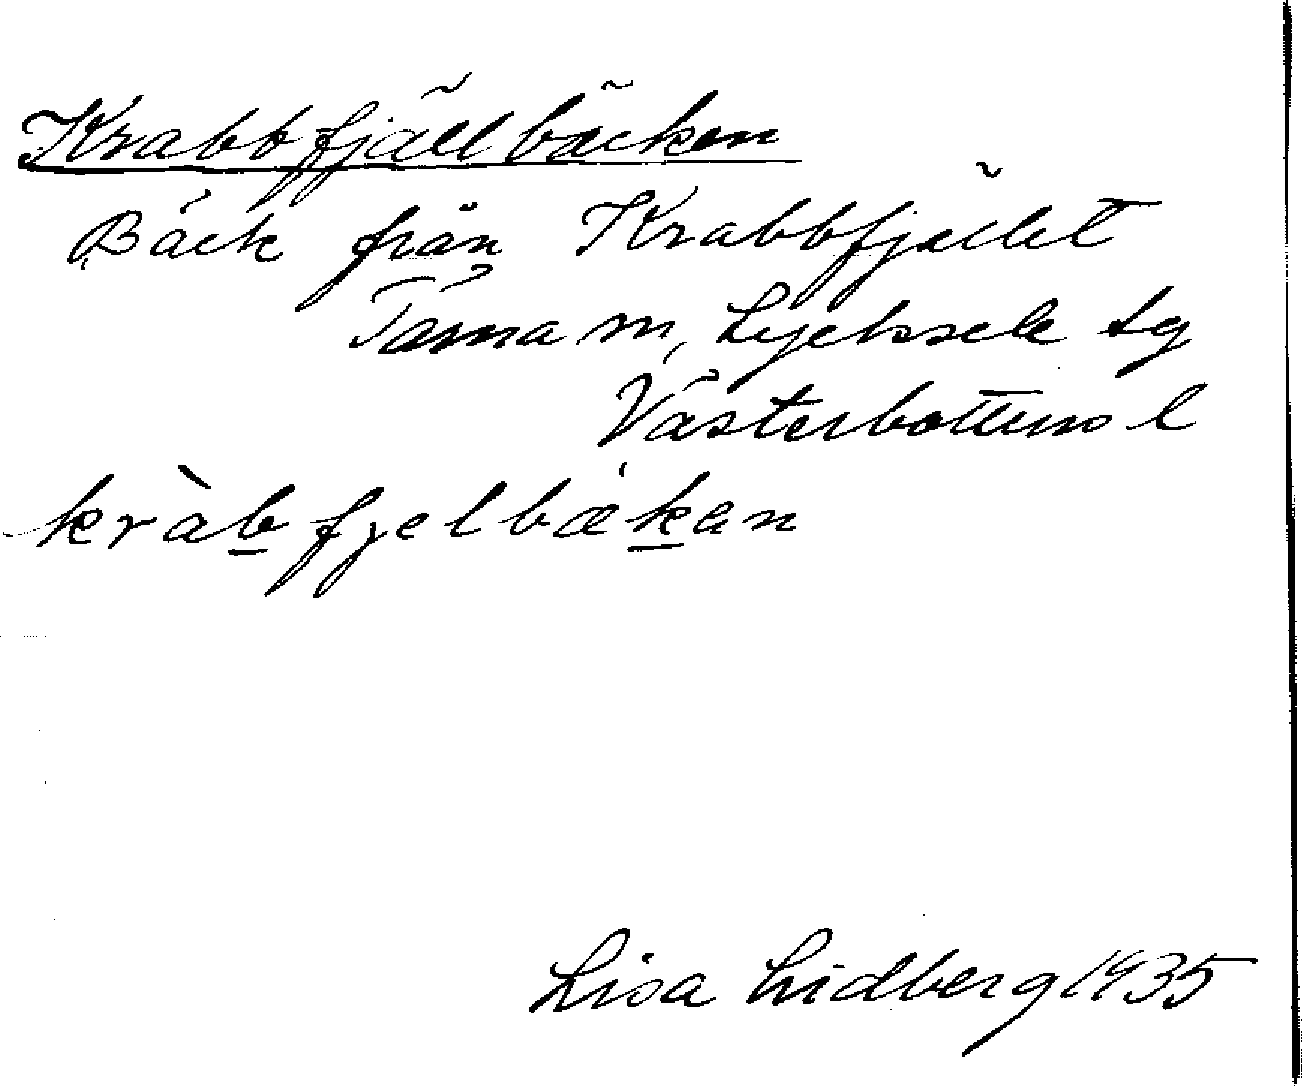 Krabbfjällbäcken
Bäck från Krabbfjället
Tärna sn, Lycksele tg
Västerbottens l
kràb̲fjelbæk̲an
Lisa Lidberg 1935